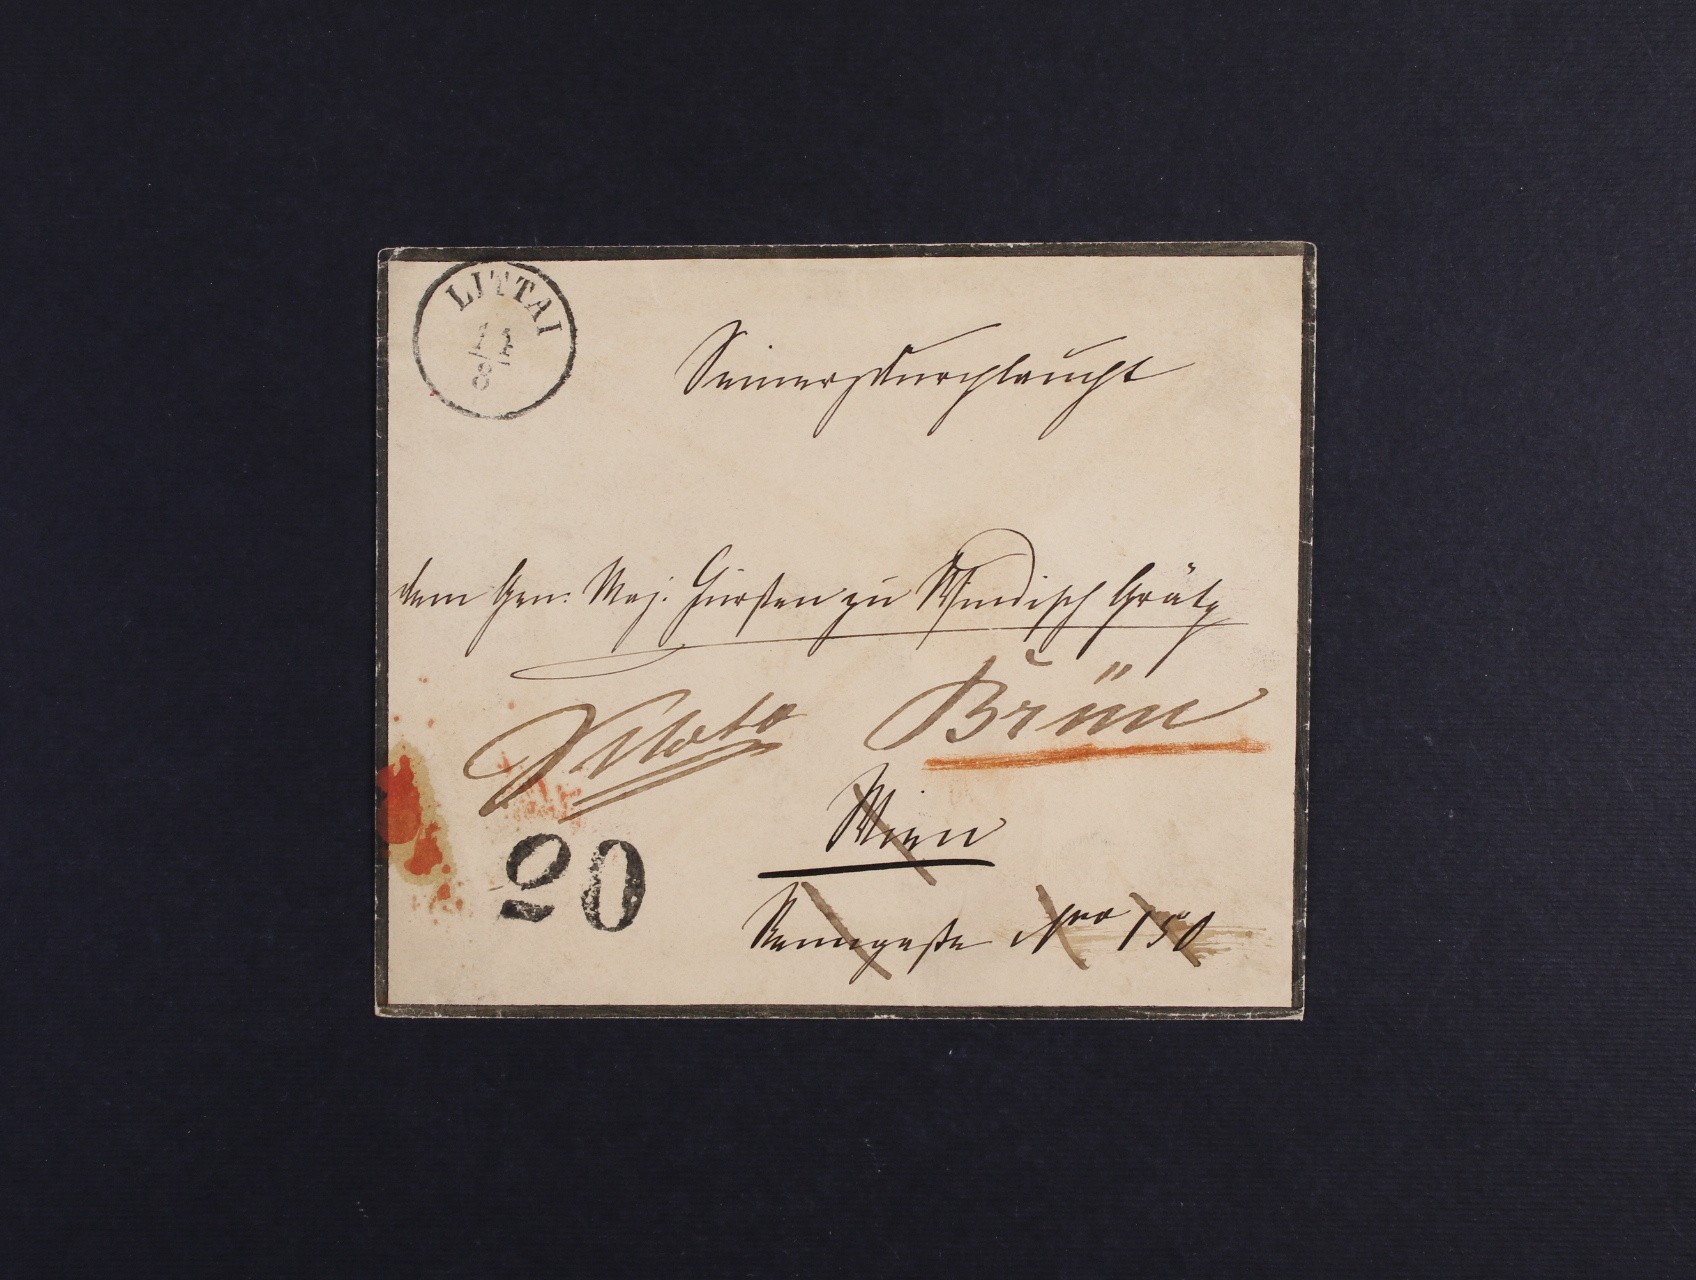 LITTAI
Seiner Durchlaucht
dem Gen: Maj: Fürsten zu Windisch Grätz
Brünn
20
Wien
Renngasse Nro 150